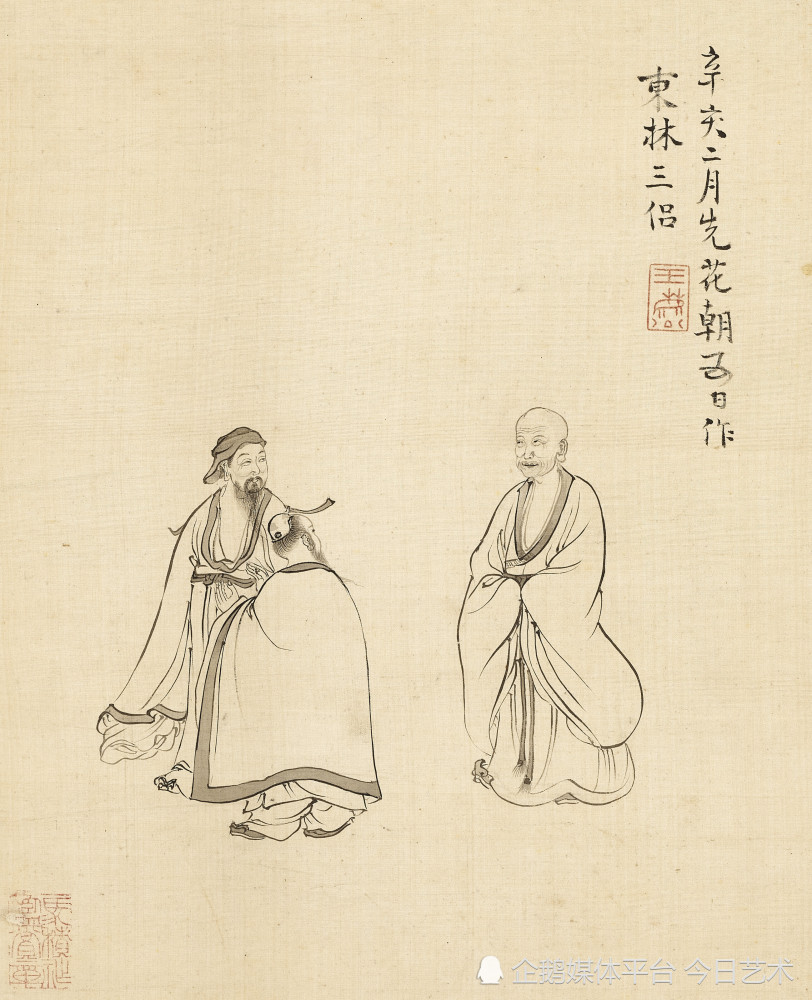 辛亥二月先花朝五日作
東林三侣
企鹅媒体平台 今日艺术